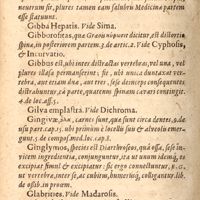 neuerim sit, plures tamen eam salubrem Medicinæ partem
esse statuerunt.
Gibba Hepatis. Vide Sima.
Gibborositas, quæ Græcis dicitur, est distortio
spina, in posteriorem partem. 3. de artic. 2. Vide Cyphosis,
& Incuruatio.
Gibbus est, ubi inter distractas vertebras, vel una, vel
plures illæsæ permanserint: sic, ubi unica duntaxat verte-
bra, aut etiam duæ, aut tres, sese demceps consequentes,
delirabuntur, distortionis id genus, κύφωσις, id est, gib-
bus appellatur.
Gilva emplastra. Vide Dichroma.
Gingivæ, carnes sunt, quæ sunt circa dentes, 9. de
usu part. cap. 5. ubi primores locellis suis & alveolis emer-
gunt. 5. de compos. med. loc. cap. 8.
Ginglymos, species est Diarthroseos, quâ ossa, sese in-
vicem ingredientia, conjunguntur, ita ut unum idemque, &
excipiat simul & excipiatur: sic ergo connectuntur, &
vertebræ, inter se, & cubitus, humerique, colligantur. lib.
de ossib. in proœm.
Glabrities. Vide Madarosis.